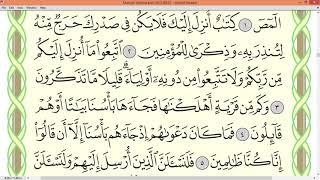 الٓمٓصٓ ١ كِتَٰبٌ أُنزِلَ إِلَيْكَ فَلَا يَكُن فِى صَدْرِكَ حَرَجٌ مِّنْهُ
لِتُنذِرَ بِهِۦ وَذِكْرَىٰ لِلْمُؤْمِنِينَ ٢ ٱتَّبِعُوا۟ مَآ أُنزِلَ إِلَيْكُم
مِّن رَّبِّكُمْ وَلَا تَتَّبِعُوا۟ مِن دُونِهِۦٓ أَوْلِيَآءَ ۗ قَلِيلًا مَّا تَذَكَّرُونَ
٣ وَكَم مِّن قَرْيَةٍ أَهْلَكْنَٰهَا فَجَآءَهَا بَأْسُنَا بَيَٰتًا أَوْ هُمْ
قَآئِلُونَ ٤ فَمَا كَانَ دَعْوَىٰهُمْ إِذْ جَآءَهُم بَأْسُنَآ إِلَّآ أَن قَالُوٓا۟
إِنَّا كُنَّا ظَٰلِمِينَ ٥ فَلَنَسْـَٔلَنَّ ٱلَّذِينَ أُرْسِلَ إِلَيْهِمْ وَلَنَسْـَٔلَنَّ